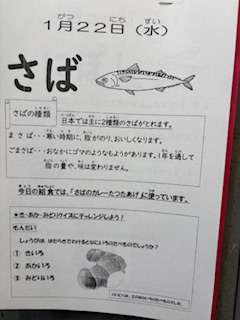 1月22日（水）
さば
さばの種類
日本では主に2種類のさばがとれます。
まさば・・・寒い時期に、脂がのり、おいしくなります。
ごまさば・・・おなかにゴマのようなもようがあります。1年を通して
脂の量や、味は変わりません。
今日の給食では、「さばのカレーたつたあげ」に使っています。
★き・あか・みどりクイズにチャレンジしよう！
もんだい
しょうがは、はたらきでわけるとなにいろのたべものでしょうか？
① きいろ
② あかいろ
③ みどりいろ